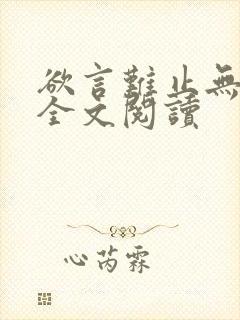 欲言難止無
全文閱讀
心芮霖